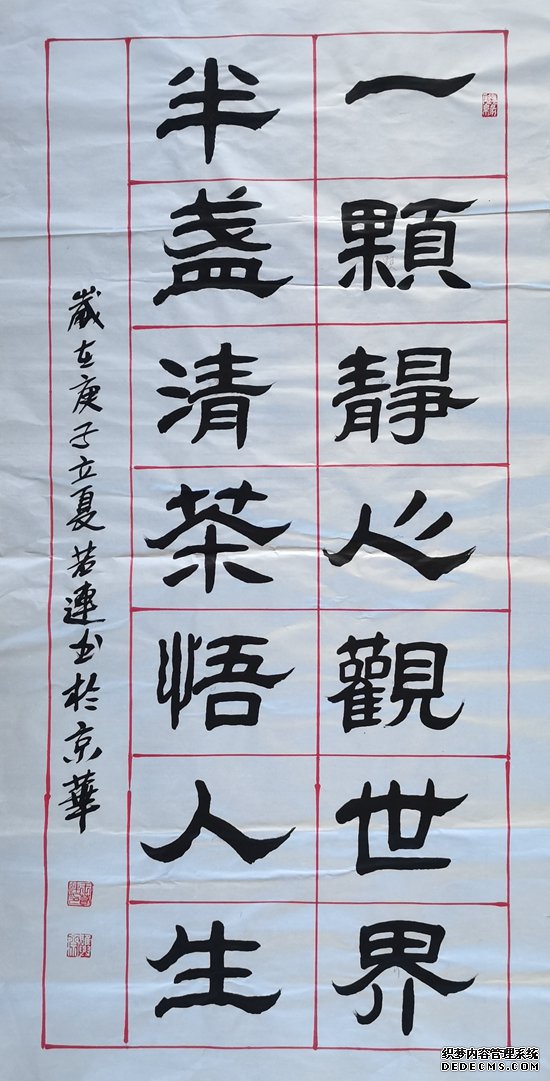 一顆靜心觀世界
半盞清茶悟人生
歲在庚子立夏若連书於京華
织梦内容管理系统
DEDECMS.COM